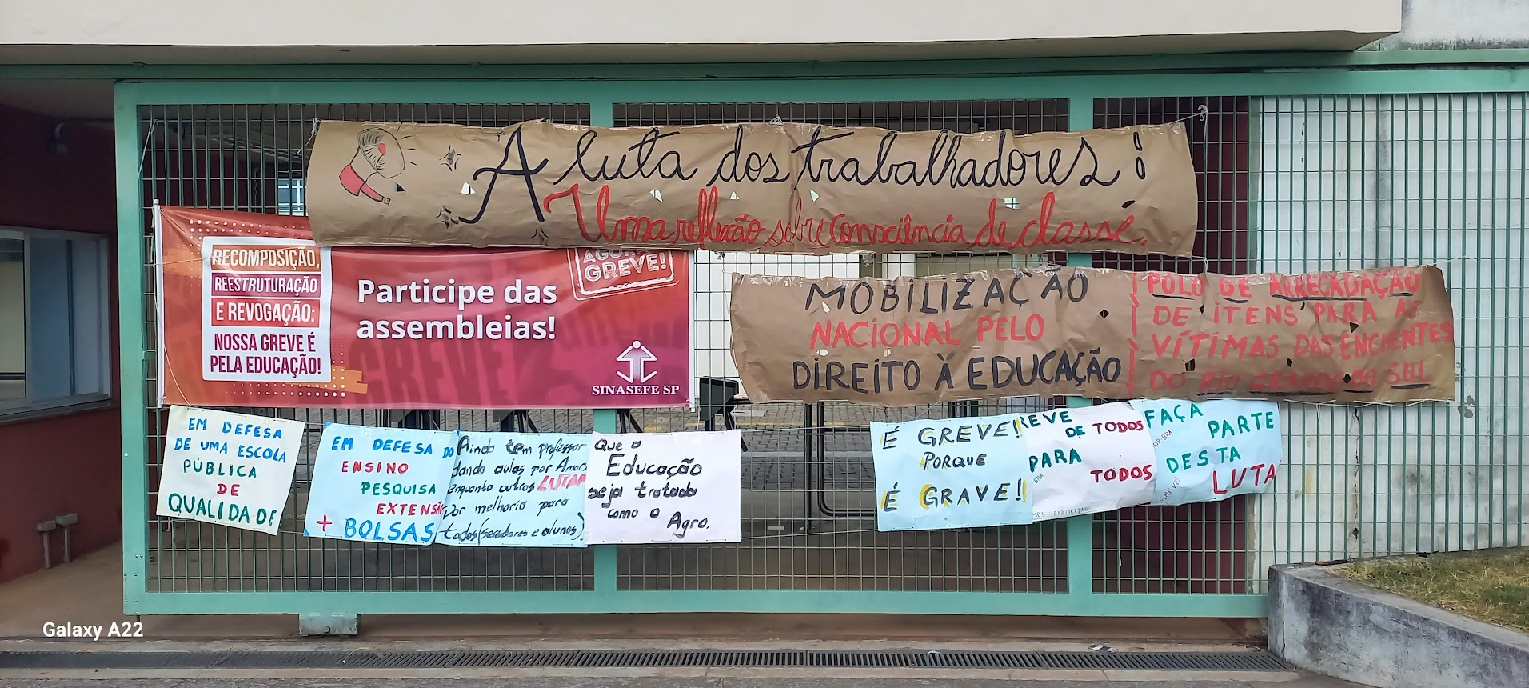 A luta dos trabalhadores:
Uma reflexão sobre Consciência de classe.
RECOMPOSIÇÃO,
REESTRUTURAÇÃO
E REVOGAÇÃO:
NOSSA GREVE É
PELA EDUCAÇÃO!
Participe das
assembleias!
GREVE!
SINASEFE SP
GREVE
MOBILIZAÇÃO
NACIONAL PELO
DIREITO À EDUCAÇÃO
POLO DE ARRECADAÇÃO
DE ITENS PARA AS
VÍTIMAS DAS ENCHENTES
DO RIO GRANDE DO SUL
EM DEFESA
DE UMA ESCOLA
PÚBLICA
DE
QUALIDADE
EM DEFESA DO
ENSINO
PESQUISA
EXTENSÃ
+ BOLSAS
Ainda tem professor
dando aulas por Amor
enquanto outros LUTAM
por melhoria para
todos (servidores e alunos)
Que a
Educação
seja tratada
como o
Agro.
É GREVE!
PORQUE
É GRAVE!
REVE
DE TODOS
PARA
TODOS
FAÇA
PARTE
DESTA
LUTA
Galaxy A22